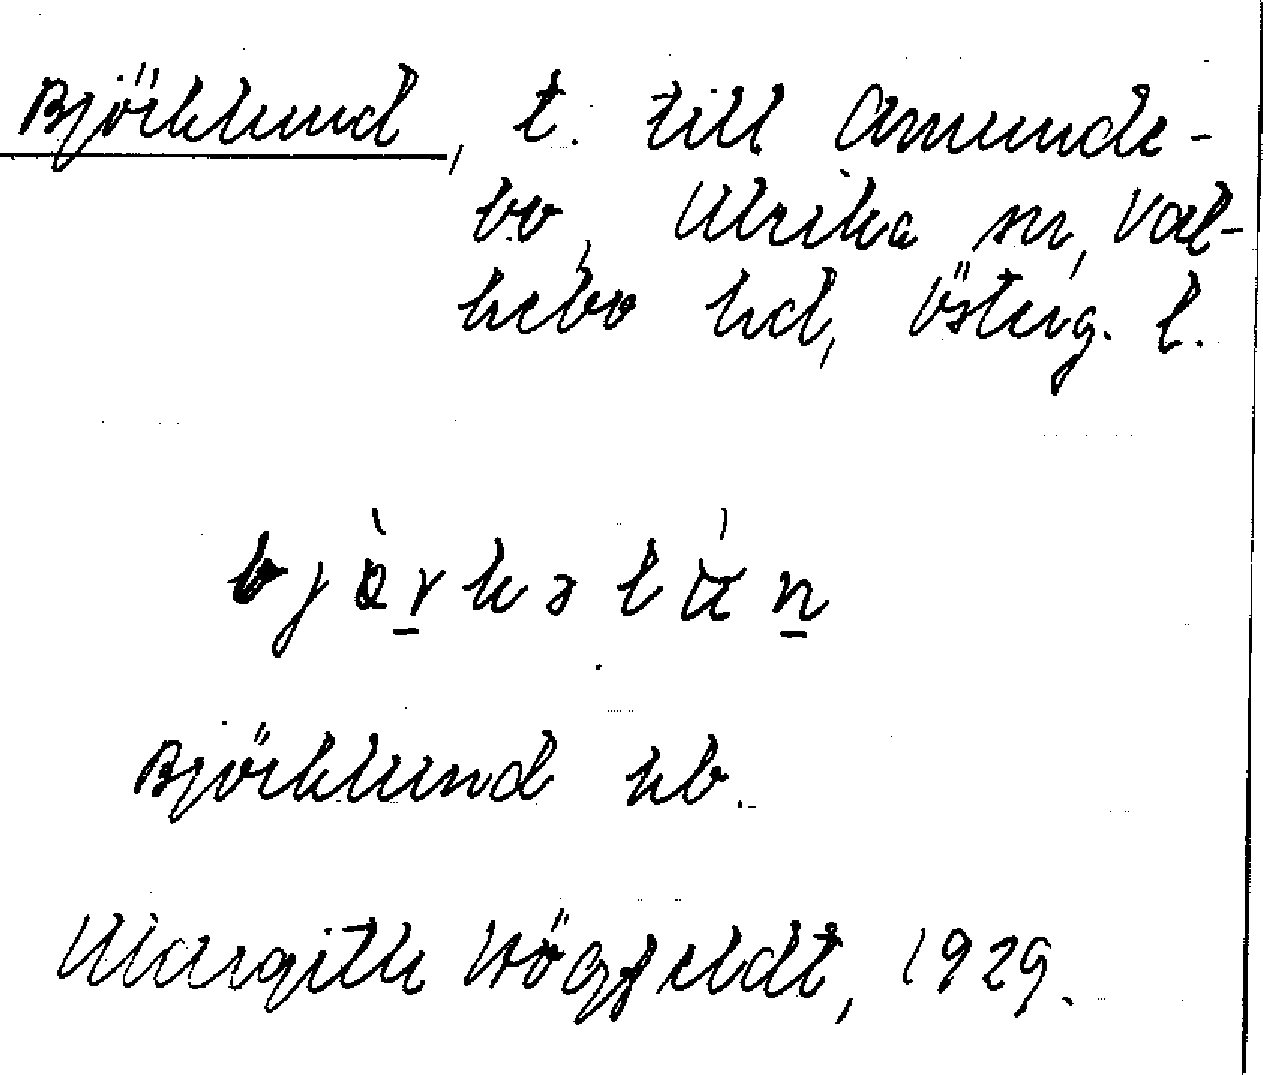 Björklund, t. till Amunde-
bo, Ulrika sn, Val-
kebo hd, Österg. l.
Björklund kb.
Margith Högfeldt, 1929.